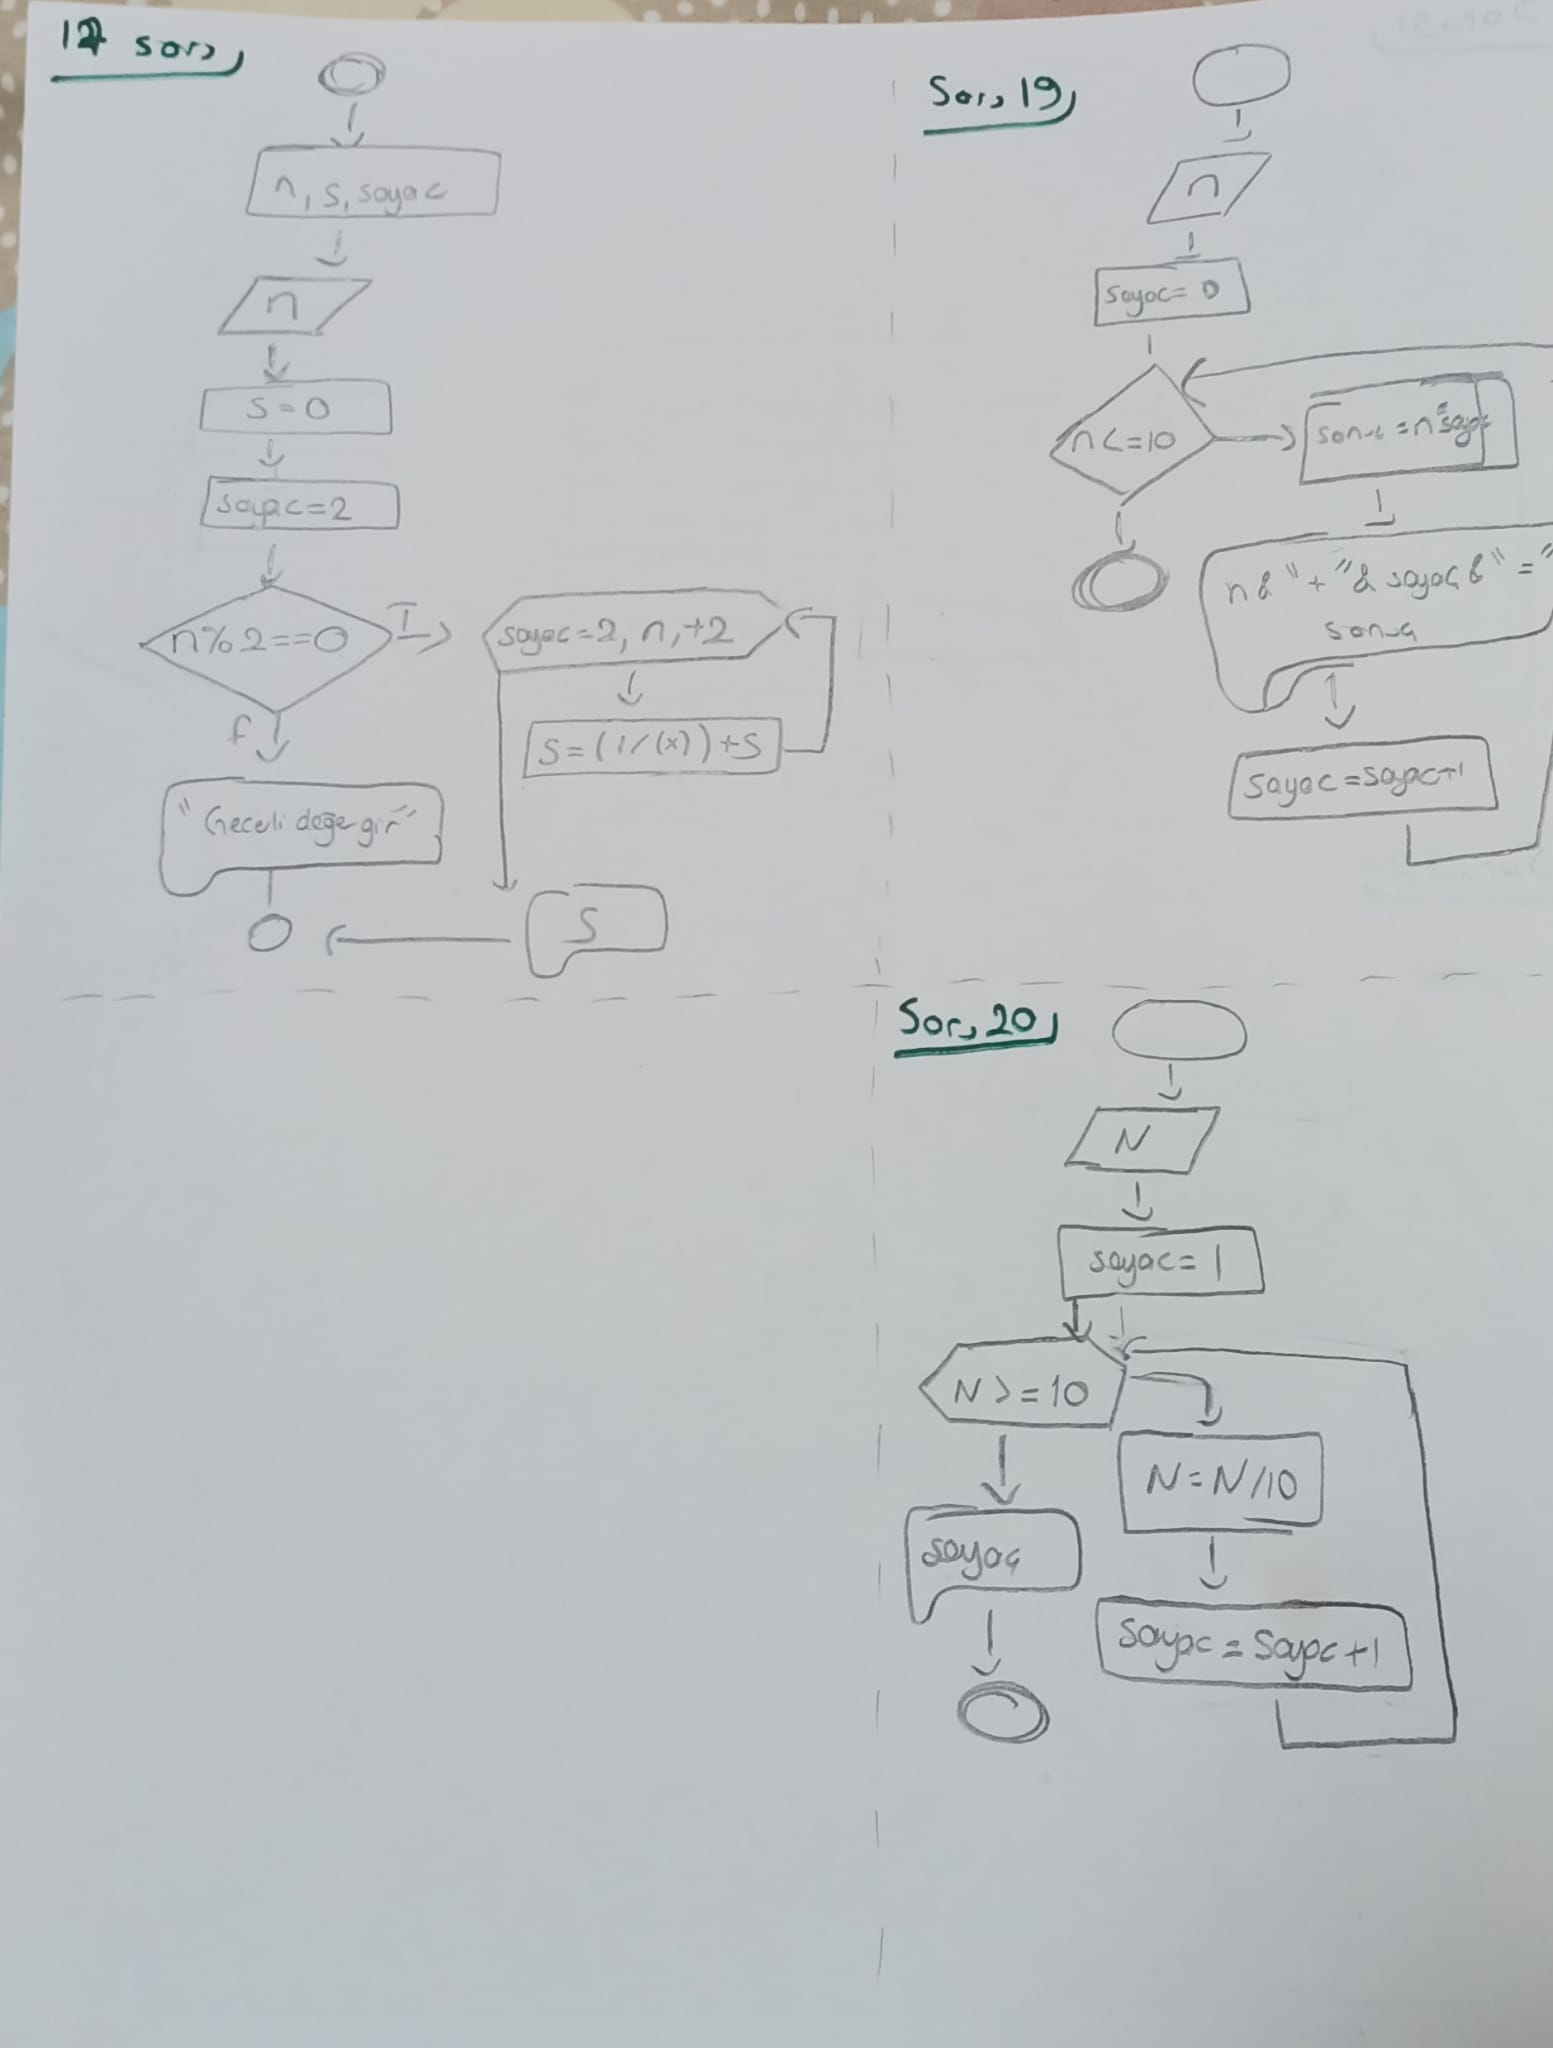 17 soru
n, s, sayac
n
S=0
sayac=2
n%2==0
T
sayac=2, n, +2
f
S=(1/(x))+S
"Geceli değer gir"
S
Soru 19
n
sayac= 0
n<=10
sonuc=n*sayac
n & "+" & sayaç & "="
sonuç
sayac=sayac+1
Soru 20
N
sayac=1
N>=10
N=N/10
sayaç
Sayac=Sayac+1